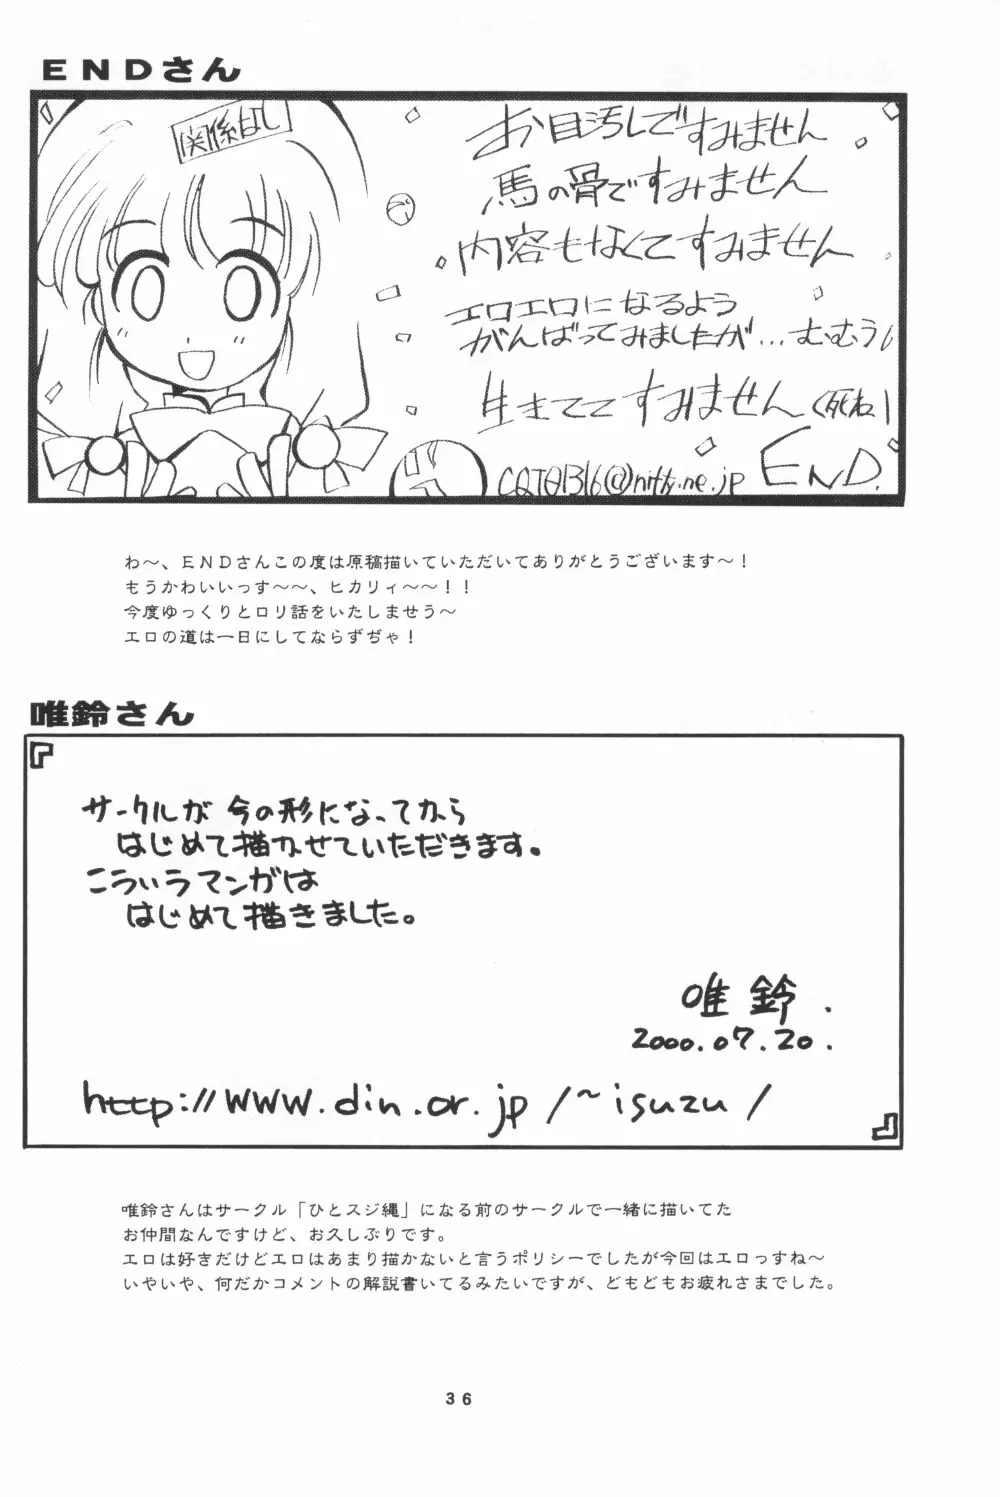 ＥＮＤさん
関係なし
お目汚しですみません
馬の骨ですみません
内容もなくてすみません
エロエロになるよう
がんばってみましたが…むむぅ
生きててすみません(死ね)
END.
CQT01316@nifty.ne.jp
わ～、ＥＮＤさんこの度は原稿描いていただいてありがとうございます～！
もうかわいいっす～～、ヒカリィ～～！！
今度ゆっくりとロリ話をいたしませう～
エロの道は一日にしてならずぢゃ！
唯鈴さん
『
サークルが 今の形になってから
はじめて描かせていただきます。
こういうマンガは
はじめて描きました。
唯鈴.
2000.07.20.
http://www.din.or.jp/~isuzu/
』
唯鈴さんはサークル「ひとスジ縄」になる前のサークルで一緒に描いてた
お仲間なんですけど、お久しぶりです。
エロは好きだけどエロはあまり描かないと言うポリシーでしたが今回はエロっすね～
いやいや、何だかコメントの解説書いてるみたいですが、どもどもお疲れさまでした。
36